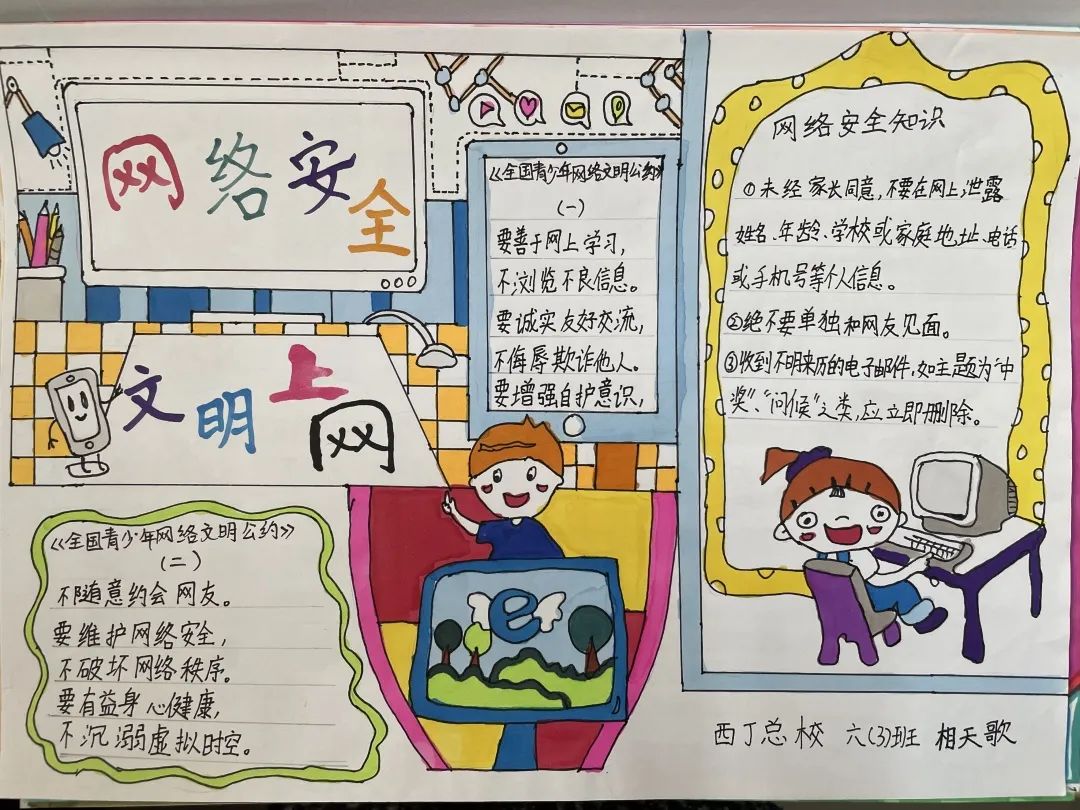 网络安全
文明上网
《全国青少年网络文明公约》
(一)
要善于网上学习,
不浏览不良信息。
要诚实友好交流,
不侮辱欺诈他人。
要增强自护意识,
《全国青少年网络文明公约》
(二)
不随意约会网友。
要维护网络安全,
不破坏网络秩序。
要有益身心健康,
不沉溺虚拟时空。
网络安全知识
①未经家长同意,不要在网上泄露
姓名、年龄、学校或家庭地址、电话
或手机号等个人信息。
②绝不要单独和网友见面。
③收到不明来历的电子邮件,如主题为“中
奖”、“问候”之类,应立即删除。
e
西丁总校 六(3)班 相天歌